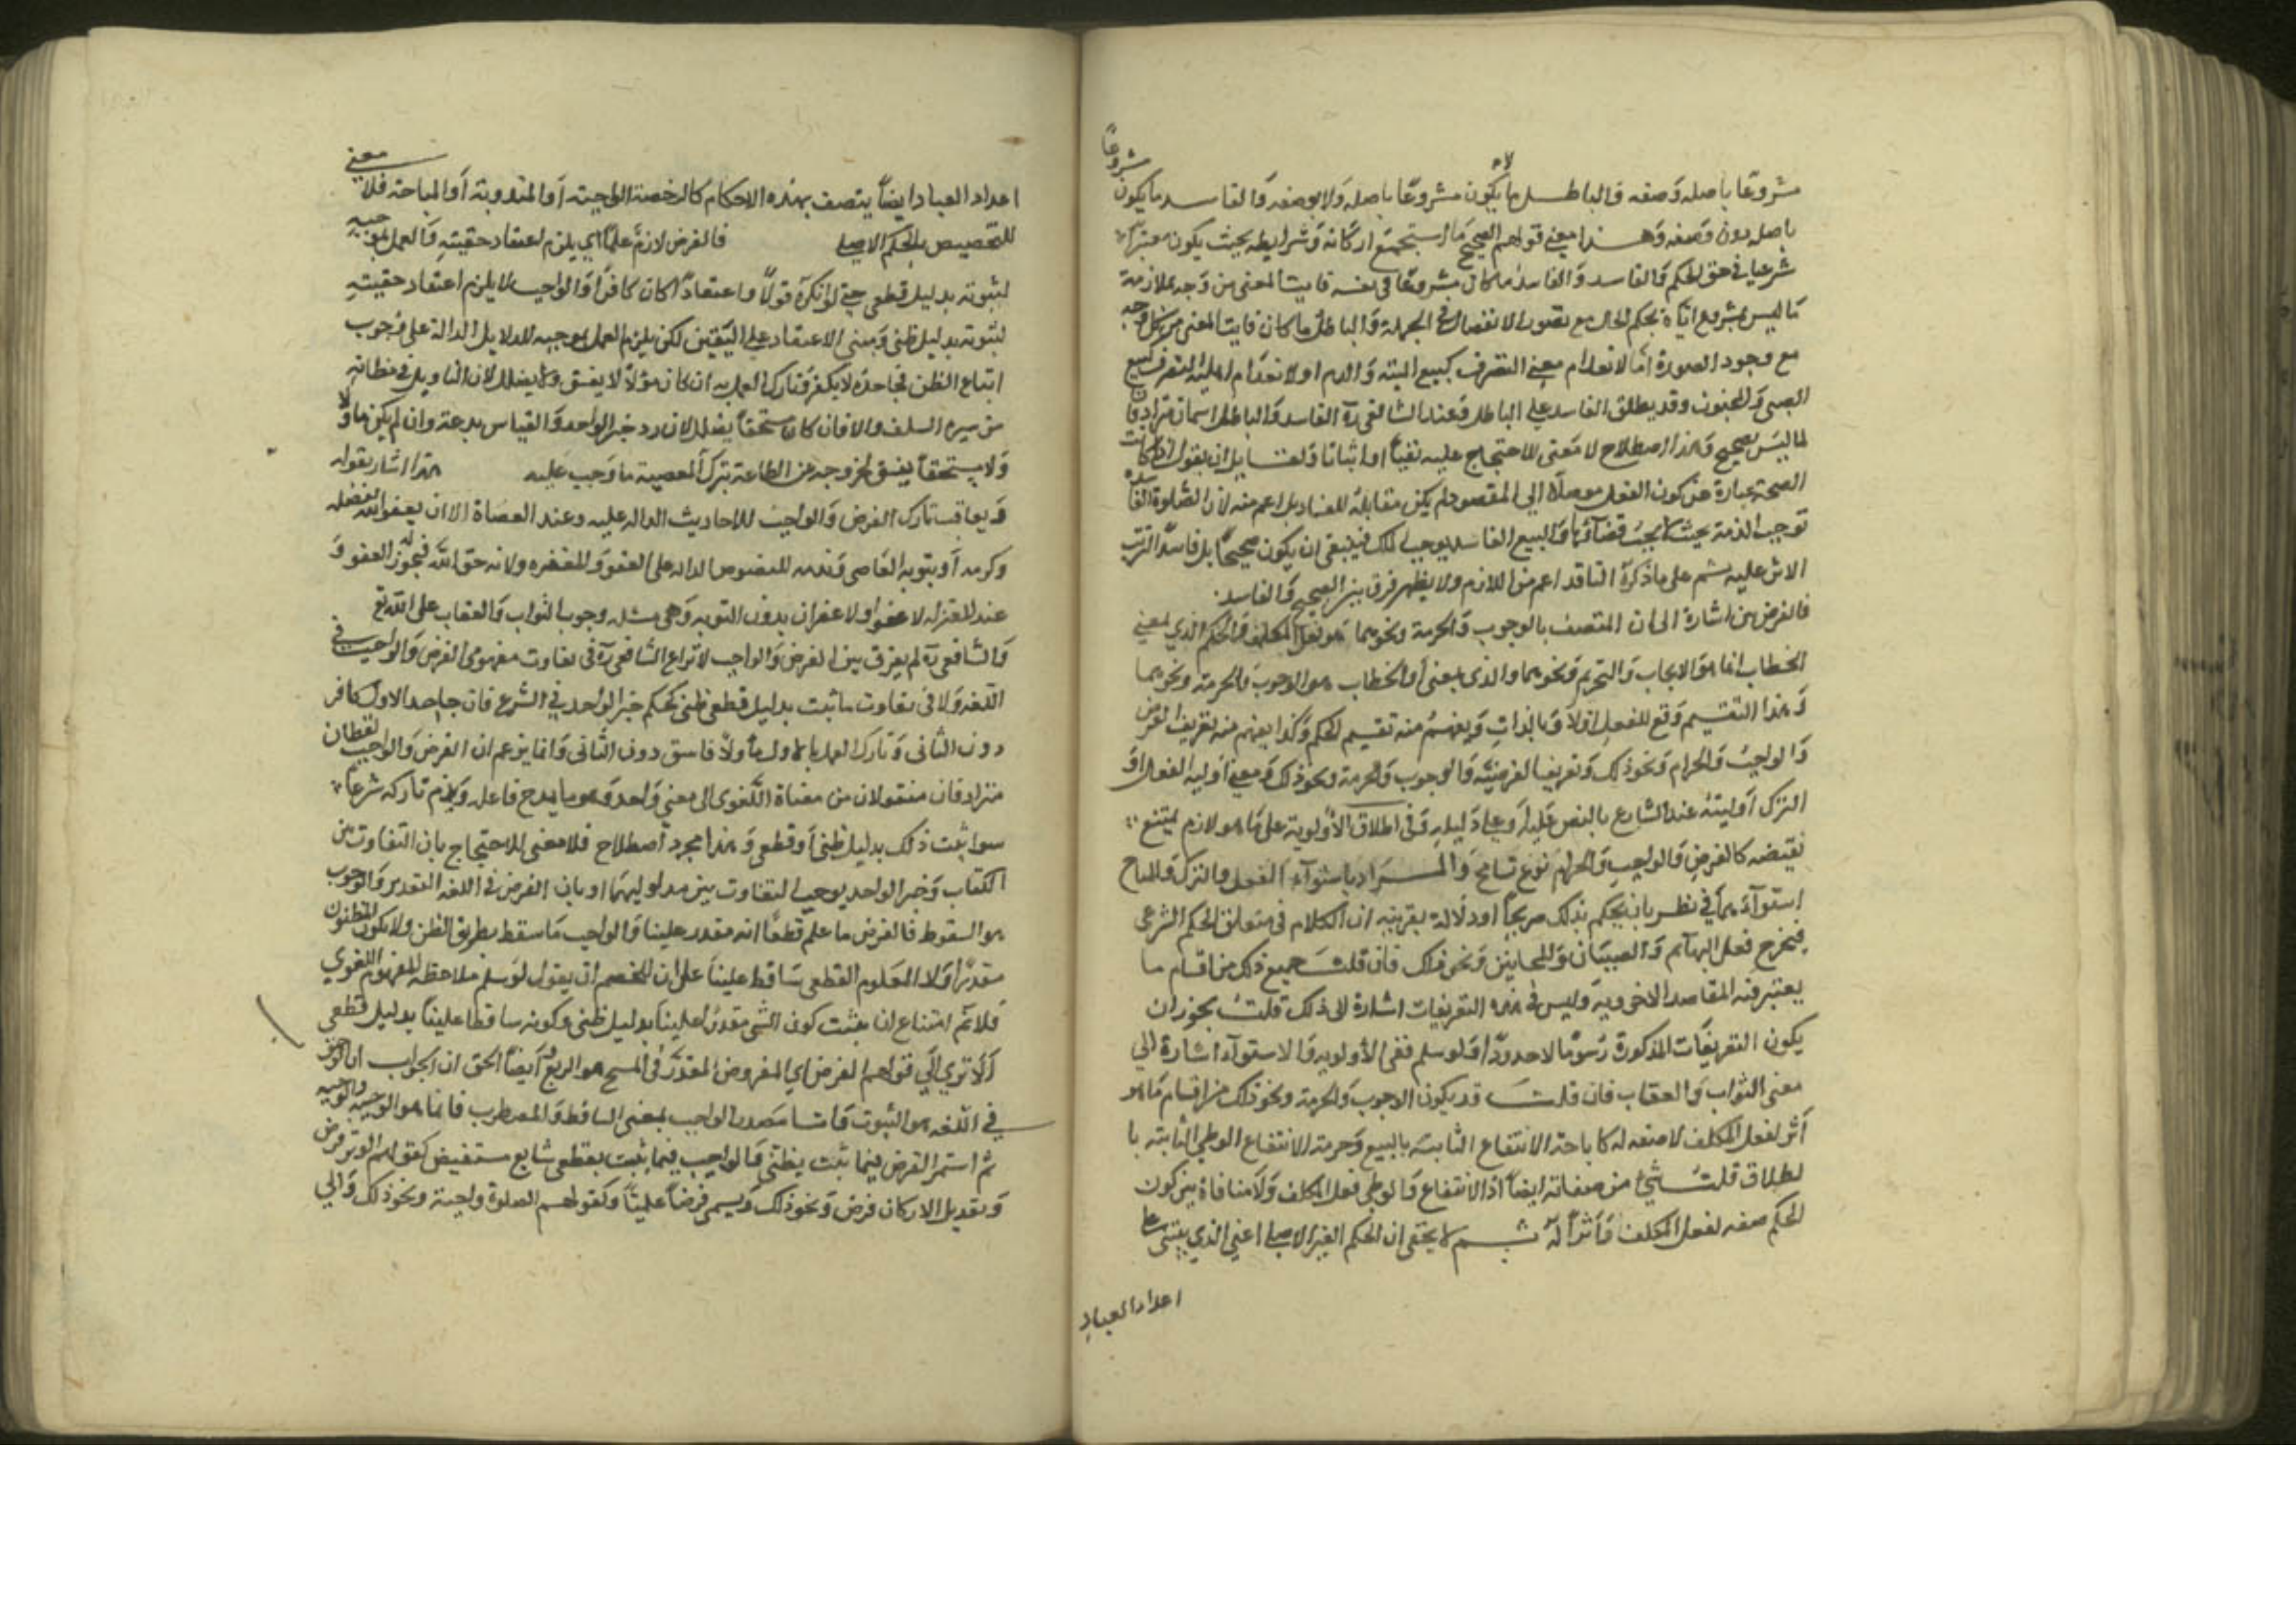 مشروعًا باصله وَصفه فالباطل ما لا يكون مشروعًا باصله وَلا بوصفه وَالفاسد ما يكون مشروعًا
باصله دون وَصفه وَهذا معنى قولهم الصحيح مَا استجمع اركانه وَشرايطه بحيث يكون معتبرًا
شرعيا في حق الحكم وَالفاسد وَالفاسد ما كان مشروعًا فى نفسه فايت المعنى من وَجه لملازمة
مَا ليس بمشروع اياه بحكم الحال مع تصور الانفصال فى الجملة وَالباطل ما كان فايت المعنى من كل وجه
مع وجود الصورة اما لانعدام معنى التصرف كبيع الميتة وَالدم او لانعدَام اهلية المتصرف كبيع
الصبى وَالمجنون وقد يطلق الفاسد على الباطل وَعند الشافعى رَه الفاسد وَالباطل اسمان مترادفان
لما ليسَ بصحيح وَهذا اصطلاح لا مَعنى للاحتجاج عليه نفيًا او اثباتا وَلقايل ان يقول اذا كانت
الصحة عبارة عن كون الفعل موصلًا الى المقصود لم يكن مقابلهُ للفساد بل اعم منه لان الصّلوة الفاسدة
توجب الذمة بحيث لا يجبُ قضاؤها وَالبيع الفاسد يوجب الملك فينبغى ان يكون صحيحًا بل فاسدًا لترتب
الاثر عليه ثم على ما ذكرهُ النافذ اعم من اللازم ولا يظهر فرق بين الصحيح وَالفاسد
فالفرض من اشارة الى ان المتصف بالوجوب وَالحرمة ونحوهما هو فعل المكلف وَالحكم الذي بمعنى
الخطاب انما هوَ الايجاب وَالتحريم وَنحوهما والذى بمعنى أثر الخطاب هو الوجوبَ وَالحرمة ونحوهما
وَهذا التقسيم وَقع للفعلِ اوّلا وَبالذاتِ وَيفهمُ منه تقسيم الحكم وَكذا يفهم منه تعريف الفرض
وَالواجبُ وَالحرام وَنحوذلك وَتعريف الفرضيّة وَالوجوب وَالحرمة ونحو ذلك وَمعنى اولية الفعل اوَ
الترك اوَليتهُ عند الشارع بالنص عَليه اوَ على دَليلهِ وَفى اطلاق الأولوية على مَا هو لازم يمتنع
نقيضه كالفرضِ وَالواجبِ وَالحرامِ نوع تسامح وَالمرَاد باستوآءِ الفعل والترك وَالمباح
استوآءهما في نظر بان يحكم بذلك صريحًا او دلَالة بقرينه ان الكلام فى متعلق الحكم الشرعى
فيخرج فعل البهآيم وَالصبيَان وَالمجانين وَنحو ذلك فان قلتَ جميع ذلك من اقسام ما
يعتبر فيه المقاصد الاخروية وَليس فى هذه التعريفات اشارة الى ذلك قلتُ يجوز ان
يكون التعريفَات المذكورة رُسومًا لا حدودًا وَلو سلم ففى الأولويه وَالاستوآء اشارة الى
معنى الثواب وَالعقاب فان قلتَ قد يكون الوجوب وَالحرمة ونحو ذلك من اقسام مَا هو
أثر لفعل المكلف لا صفه له كاباحة الانتفاع الثابتة بالبيع وَحرمة الانتفاع الوطي الثابته با
لطلاق قلتُ شئٍ من صفاته ايضًا اذ الانتفاع وَالوطى فعل المكلف وَلَا منافاة بين كون
الحكم صفه لفعل المكلف وَأثرًا لهُ ثم لا يخفى ان الحكم الغير الاصلى اعني الذي يبتنى على
اعداد العبادِ
اعداد العباد ايضًا يتصف بهذه الاحكام كالرخصة الواجبة اَو المندوبة أو المباحة فلا معنى
للتخصيص بالحكم الاصلى فالفرض لازمٌ علمًا اي يلزم اعتقاد حقيّتهِ وَالعمل بموجبه
لثبوته بدليل قطعى حتى لو انكرهُ قولًا واعتقادًا كان كافرًا وَالواجب لا يلزم اعتقاد حقيّتهِ
لثبوته بدليل ظنى وَمبنى الاعتقاد على اليَقين لكن يلزم العمل بموجبه للدلايل الدالة على وجوب
اتباع الظن فجاحدهُ لا يكفر وَتارك العمل به ان كان مؤلًا لا يفسق وَلا يضلل لان التاويل فى مظانه
من سيره السلف والا فان كان مستخفًا يضلل لان رد خبر الواحد وَالقياس بدعة وان لم يكن ماولا
وَلا مستخفًا يفسق لخروجه عن الطاعة بترك المعصية ما وَجب عليه هذا اشار بقوله
وَيعاقب تارك الفرض وَالواجب للاحاديث الداله عليه وعند العصَاة الا ان يعفو الله بفضله
وكرمه أو بتوبه العَاصى وَندمه للنصوص الداله على العفو وَالمغفره ولانه حق اللهِ فيجوز له العفو وَ
عند المعتزله لا عفو او لا غفران بدون التوبه وَهى مسئله وجوب الثواب وَالعقاب على الله تع
وَالشافعى رَه لم يفرق بين الفرض وَالواجب لا نزاع للشافعى رَه فى تفاوت مفهومى الفرض وَالواجب فى
اللغه وَلا فى تفاوت ما ثبت بدليل قطعى ظنى كحكم خبر الواحد في الشرع فان جاحد الاول كافر
دون الثانى وَتارك العمل بالاول مأولًا فاسق دون الثانى وَانما يزعم ان الفرض وَالواجب لفظان
مترادفان منقولان من معناه اللّغوى الى معنى وَاحد وَهو ما يمدح فاعله وَيذم تاركه شرعًا
سوا ثبت ذلك بدليل ظنى أو قطعى وَهذا مجرد أصطلاح فلا معنى للاحتجاج بان التفاوت بين
الكتاب وَخبر الواحد يوجب التفاوت بين مدلوليهمَا او بان الفرض فى اللغه التقدير وَالوجوب
هو السقوط فالفرض ما علم قطعًا انه مقدر علينا وَالواجب مَا سقط بطريق الظن ولا يكون المظنون
مقدرًا وَلا المعلوم القطعى سَاقط علينَا على ان للخصم ان يقول لوسلم ملاحظه المفهوم اللغوي
فلا ثم امتناع ان يثبت كون الشى مقدرًا علينا بدليل ظنى وكونه ساقطا علينَا بدليل قطعى
اَلَا تري الَي قولهم الفرض اي المفروض المقدّرَ فى المسح هو الربع و ايضًا الحق ان الجواب انا الوجوب
في اللّغه هو الثبوت وَاما مَصدر الواجب بمعنى الساقط وَالمضطرب فانما هو الوجبه والوجيب
ثم استعمال الفرض فيما ثبت بظنى وَالواجب فيما ثبت بقطعى شايع مستفيض كقولهم الوتر فرض
وَتعديل الاركان فرض وَنحو ذلك وَيسمى فرضًا عمليًا وكقولهم الصلوة واجبة ونحو ذلك وَالي